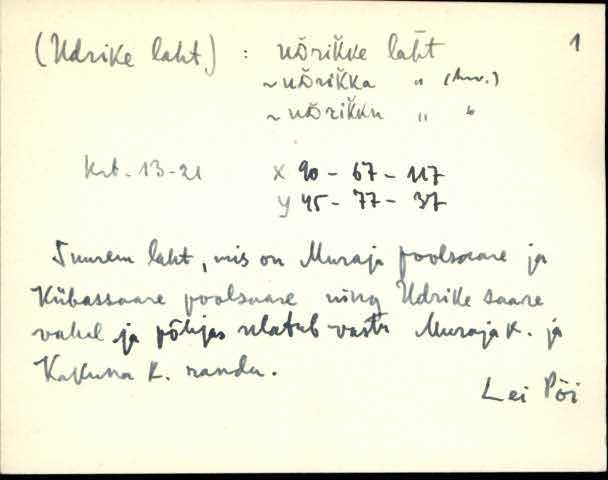 1
(Udrike laht) : uDrikke laht
~ uDrikka " (hrv.)
~ uDrikku " "
Krt. 13-21 X 90 - 67 - 117
y 45 - 77 - 37
Suurem laht, mis on Muraja poolsaare ja
Kübassaare poolsaare ning Udrike saare
vahel ja põhjas ulatub vastu Muraja k. ja
Kakuna k. randu.
Lei Pöi